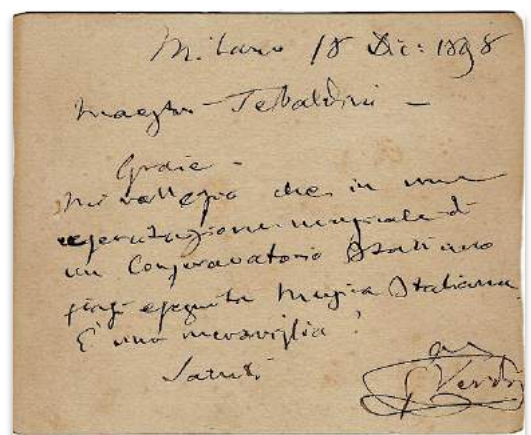 Milano 18 Dic: 1898
Maestro Tebaldini –
Grazie –
Mi rallegro che in una
esercitazione musicale di
un Conservatorio Italiano
siasi eseguita Musica Italiana.
È una meraviglia!
Saluti
G Verdi